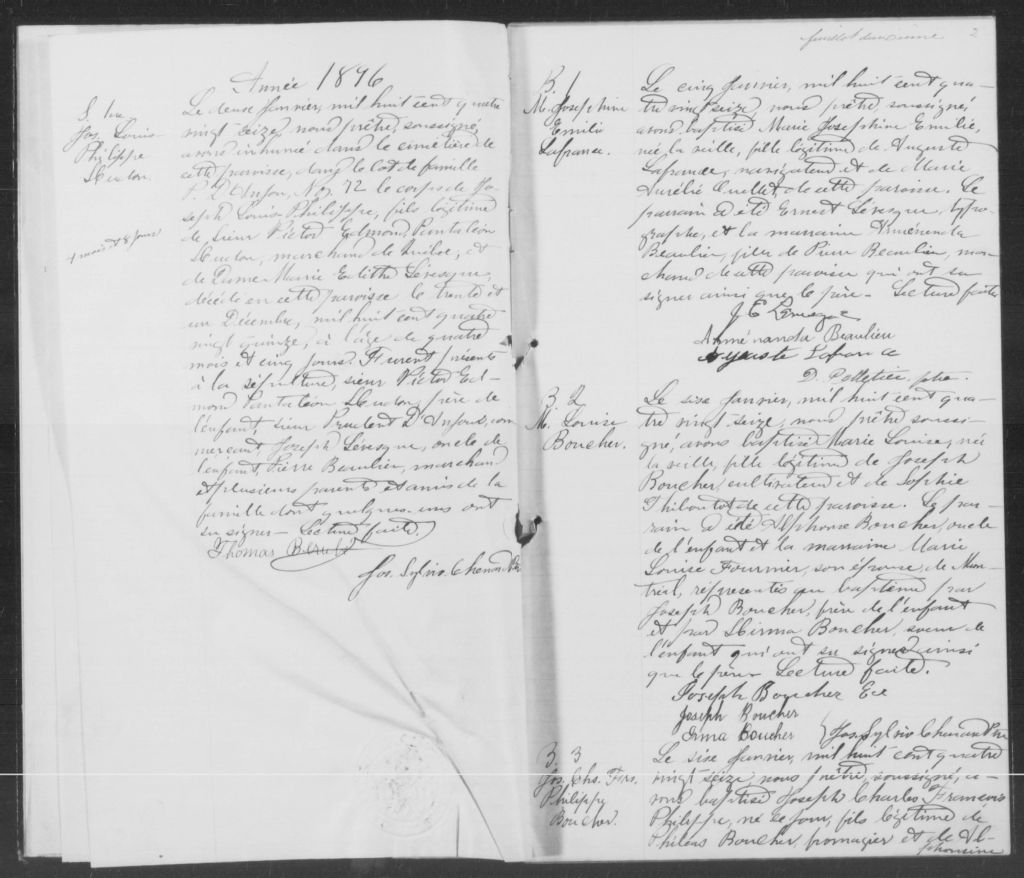 Année 1896
S. 1re
Jos. Louis
Philippe
Hudon.
4 mois et 5 jours
Le deux Janvier, mil huit cent quatre
vingt seize, nous prêtre, soussigné,
avons inhumé dans le cimetière de
cette paroisse, dans le lot de famille
P. D'Anjou, No. 72 le corps de Jo-
seph Louis Philippe, fils légitime
de Sieur Victor Edmond Pantaléon
Hudon, marchand de Québec, et
de Dame Marie Edithe Lévesque,
décédé en cette paroisse le trente et
un Décembre, mil huit cent quatre
vingt quinze, à l'âge de quatre
mois et cinq jours. Furent présents
à la sépulture, sieur Victor Ed-
mond Pantaléon Hudon, père de
l'enfant, sieur Prudent D'Anjou, com
merçant, Joseph Lévesque, oncle de
l'enfant, Pierre Beaulier, marchand
et plusieurs parents et amis de la
famille dont quelques-uns ont
su signer – Lecture faite.
Thomas Bérubé
Jos. Sylvio Chenard Ptre
feuillet deuxième 2
B. 1
M. Josephine
Emilie
Lafrance.
Le cinq Janvier, mil huit cent qua-
tre vingt seize, nous prêtre, soussigné,
avons baptisé Marie Josephine Emilie,
née la veille, fille légitime de Auguste
Lafrance, navigateur et de Marie
Aurélie Ouellet, de cette paroisse. Le
parrain a été Ernest Lévesque, typo-
graphe, et la marraine Arménanda
Beaulier, fille de Pierre Beaulier, mar-
chand de cette paroisse qui ont su
signer ainsi que le père – Lecture faite
J E Levesque
Arménanda Beaulieu
Auguste Lafrance
D. Pelletier, ptre.
B. 2
M. Louise
Boucher.
Le sixe Janvier, mil huit cent qua-
tre vingt seize, nous prêtre soussi-
gné, avons baptisé Marie Louise, née
la veille, fille légitime de Joseph
Boucher, cultivateur et de Sophie
Thiboutot de cette paroisse. Le par-
rain a été Alphonse Boucher, oncle
de l'enfant et la marraine Marie
Louise Fournier, son épouse, de Mon-
tréal, réprésentés au baptême par
Joseph Boucher, frère de l'enfant
et par Hirma Boucher, soeur de
l'enfant qui ont su signer ainsi
que le père. Lecture faite.
Joseph Boucher Ecr
Joseph Boucher
Irma Boucher
Jos. Sylvio Chenard Ptre
B. 3
Jos. Chs. Frs.
Philippe
Boucher.
Le sixe Janvier, mil huit cent quatre
vingt seize, nous prêtre, soussigné, a-
vons baptisé Joseph Charles François
Philippe, né ce jour, fils légitime de
Philéas Boucher, fromagier et de Al-
phonsine